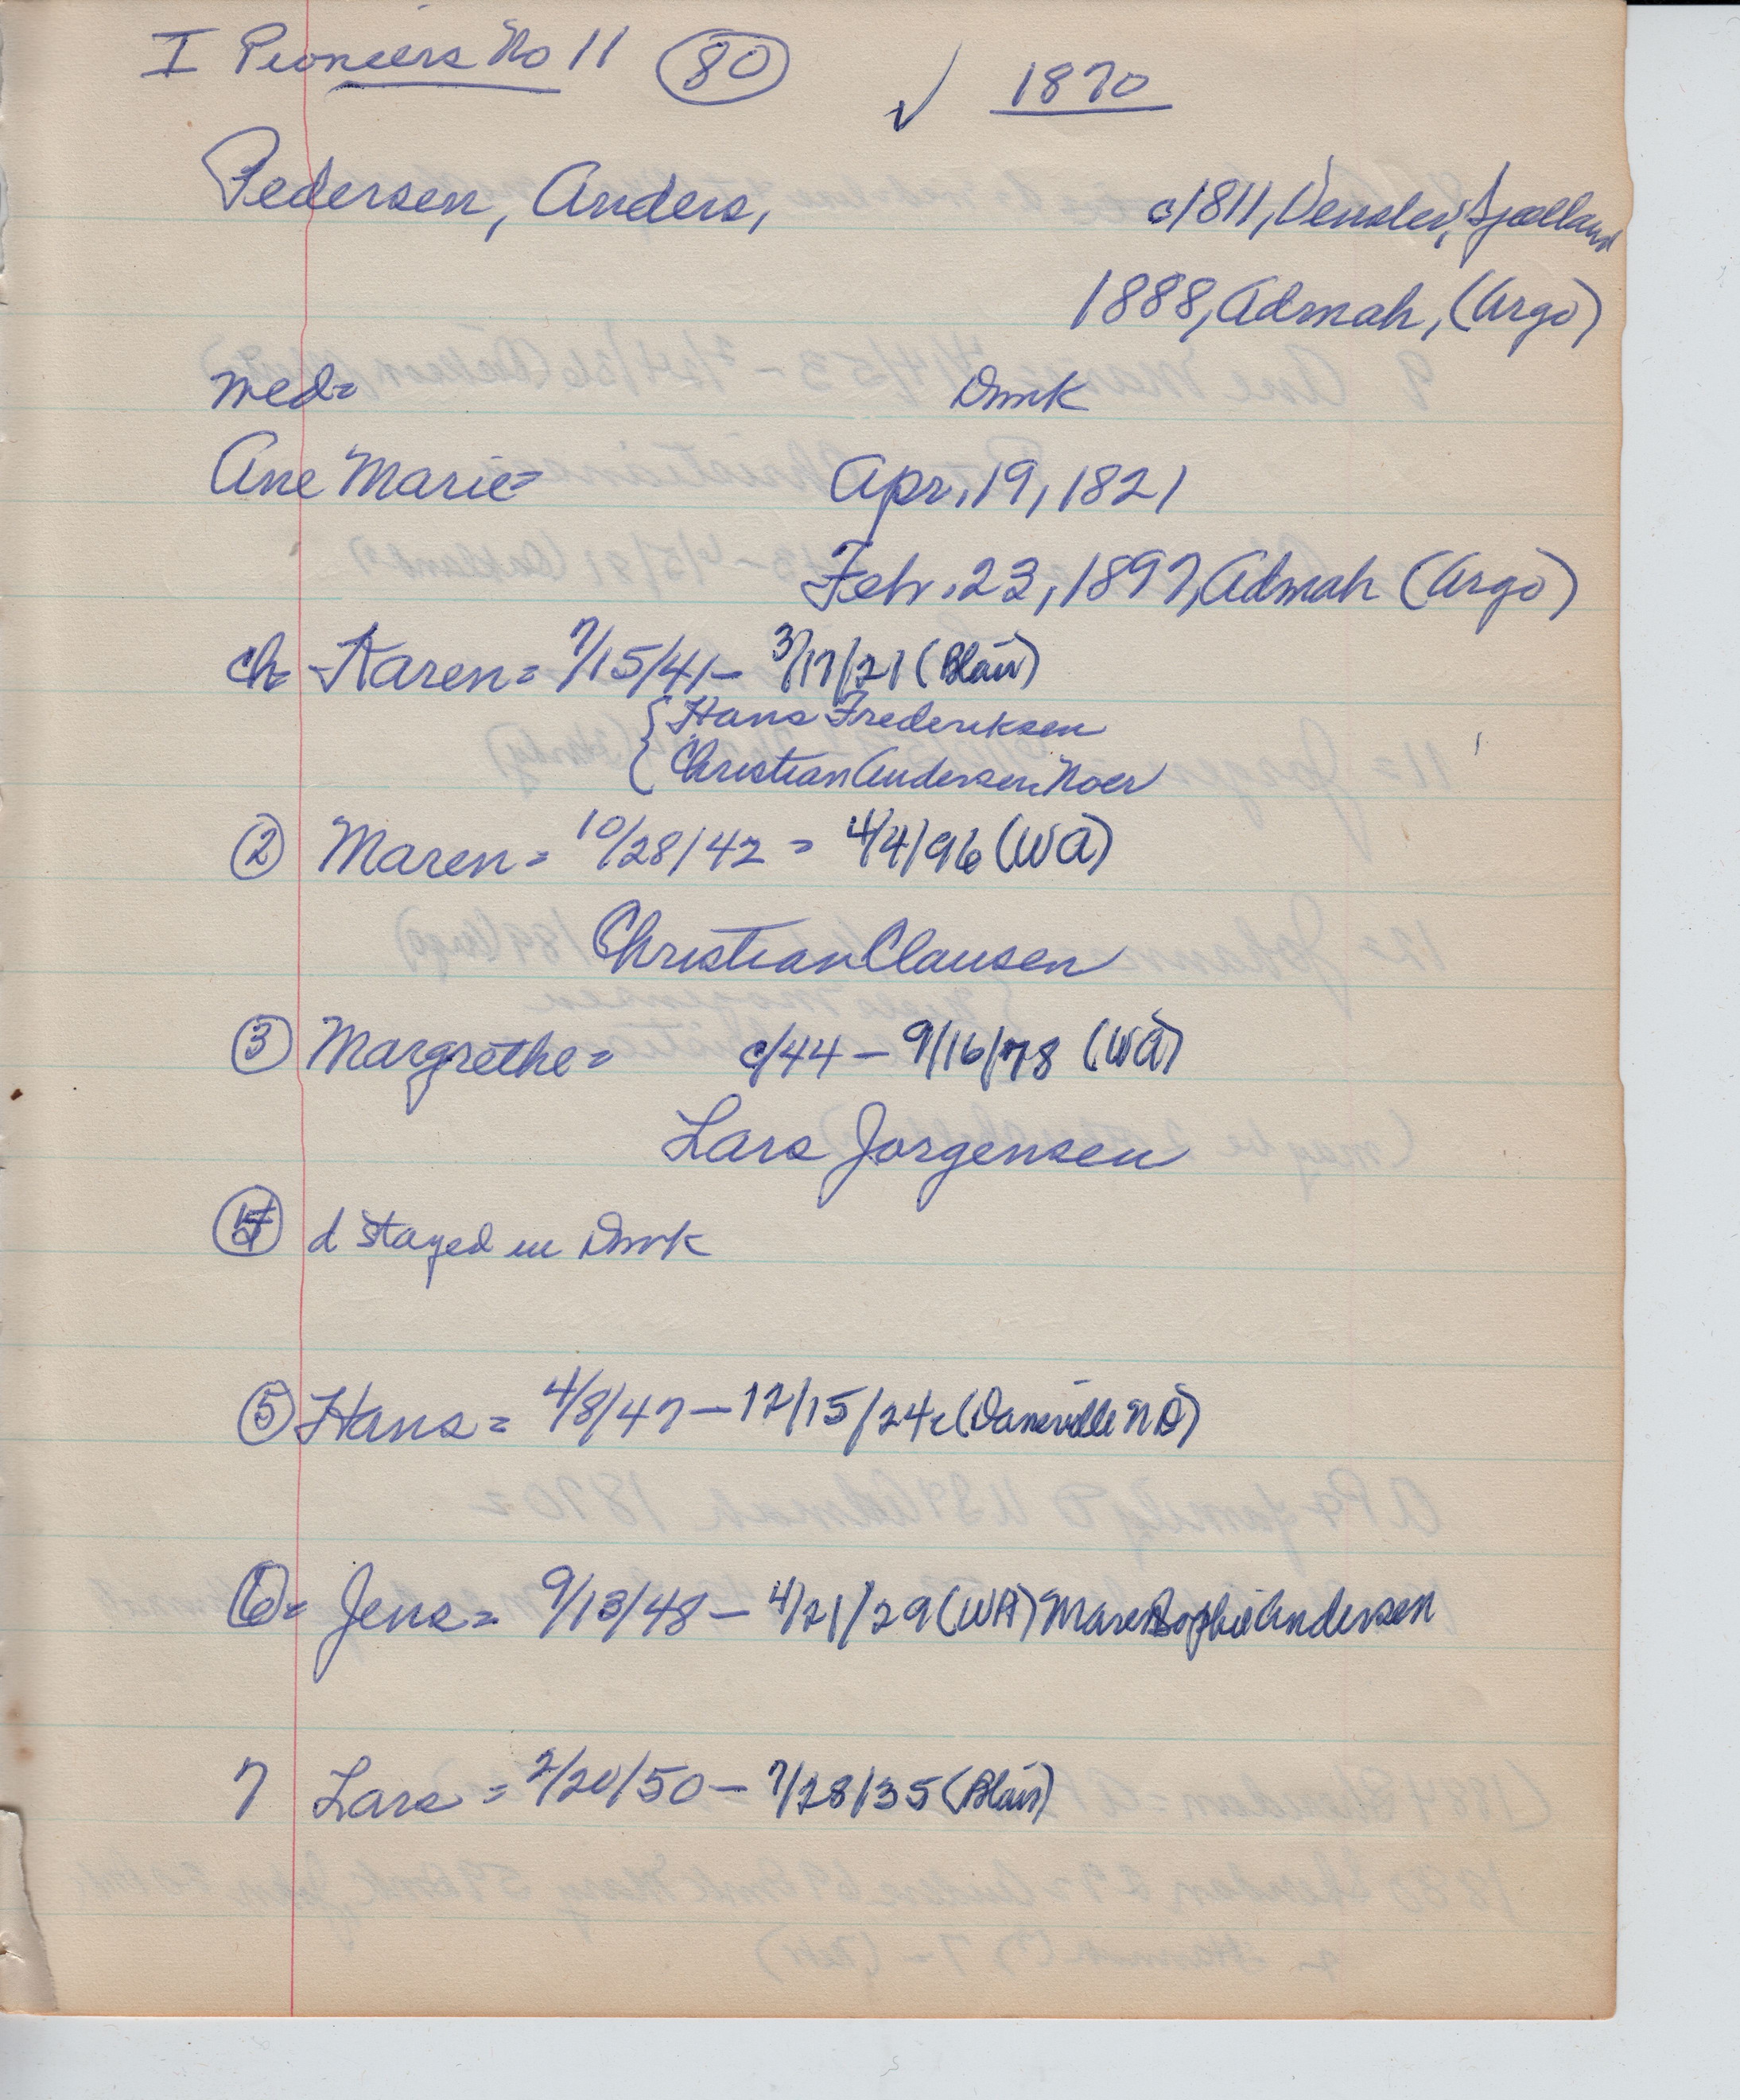 I Pioneers No 11 (80) ✓ 1870
Pedersen, Anders, c/1811, Venslev, Sjælland
1888, Admah, (Argo)
med= Dmk
Ane Marie= Apr. 19, 1821
Feb. 23, 1897, Admah (Argo)
ch- Karen= 7/15/41- 3/17/21 (Blair)
{ Hans Frederiksen
{ Christian Andersen Noer
② Maren= 10/28/42 = 4/4/96 (WA)
Christian Clausen
③ Margrethe= c/44 - 9/16/78 (WA)
Lars Jorgensen
④ d stayed in Dmk
⑤ Hans = 4/8/47 - 12/15/24 (Daneville ND)
⑥= Jens= 9/13/48 - 4/21/29 (WA) Maren Sophie Andersen
7 Lars = 2/20/50 - 7/28/35 (Blair)